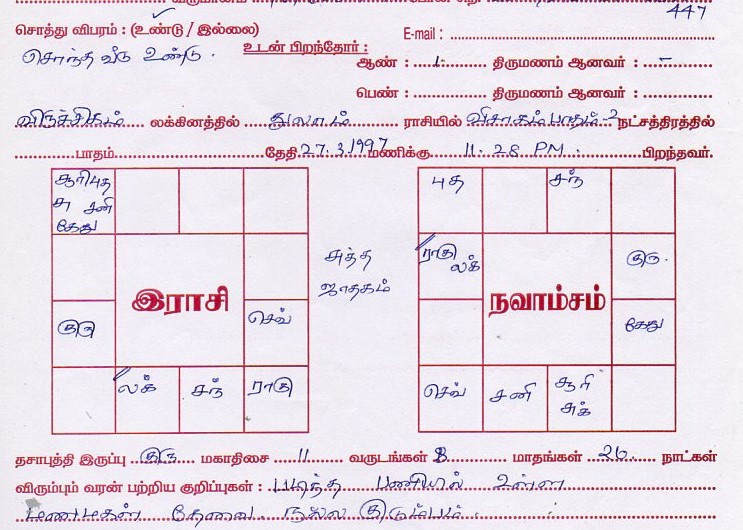 447
சொத்து விபரம் : (உண்டு / இல்லை)
E-mail :
சொந்த வீடு உண்டு.
உடன் பிறந்தோர் :
ஆண் : 1 திருமணம் ஆனவர் : -
பெண் : திருமணம் ஆனவர் :
விருச்சிகம் லக்கினத்தில் துலாம் ராசியில் விசாகம் பாதம்-2 நட்சத்திரத்தில்
பாதம் தேதி 27.3.1997 மணிக்கு 11.28 PM. பிறந்தவர்.
சூரி புத
சு சனி
கேது
புத சந்
சுத்த
ஜாதகம்
ராகு
லக்
குரு
இராசி
நவாம்சம்
குரு
செவ்
கேது
லக் சந் ராகு
செவ் சனி சூரி
சுக்
தசாபுத்தி இருப்பு குரு மகாதிசை 11 வருடங்கள் 8 மாதங்கள் 26 நாட்கள்
விரும்பும் வரன் பற்றிய குறிப்புகள் : படித்த பணியில் உள்ள
மணமகன் தேவை. நல்ல குடும்பம்.